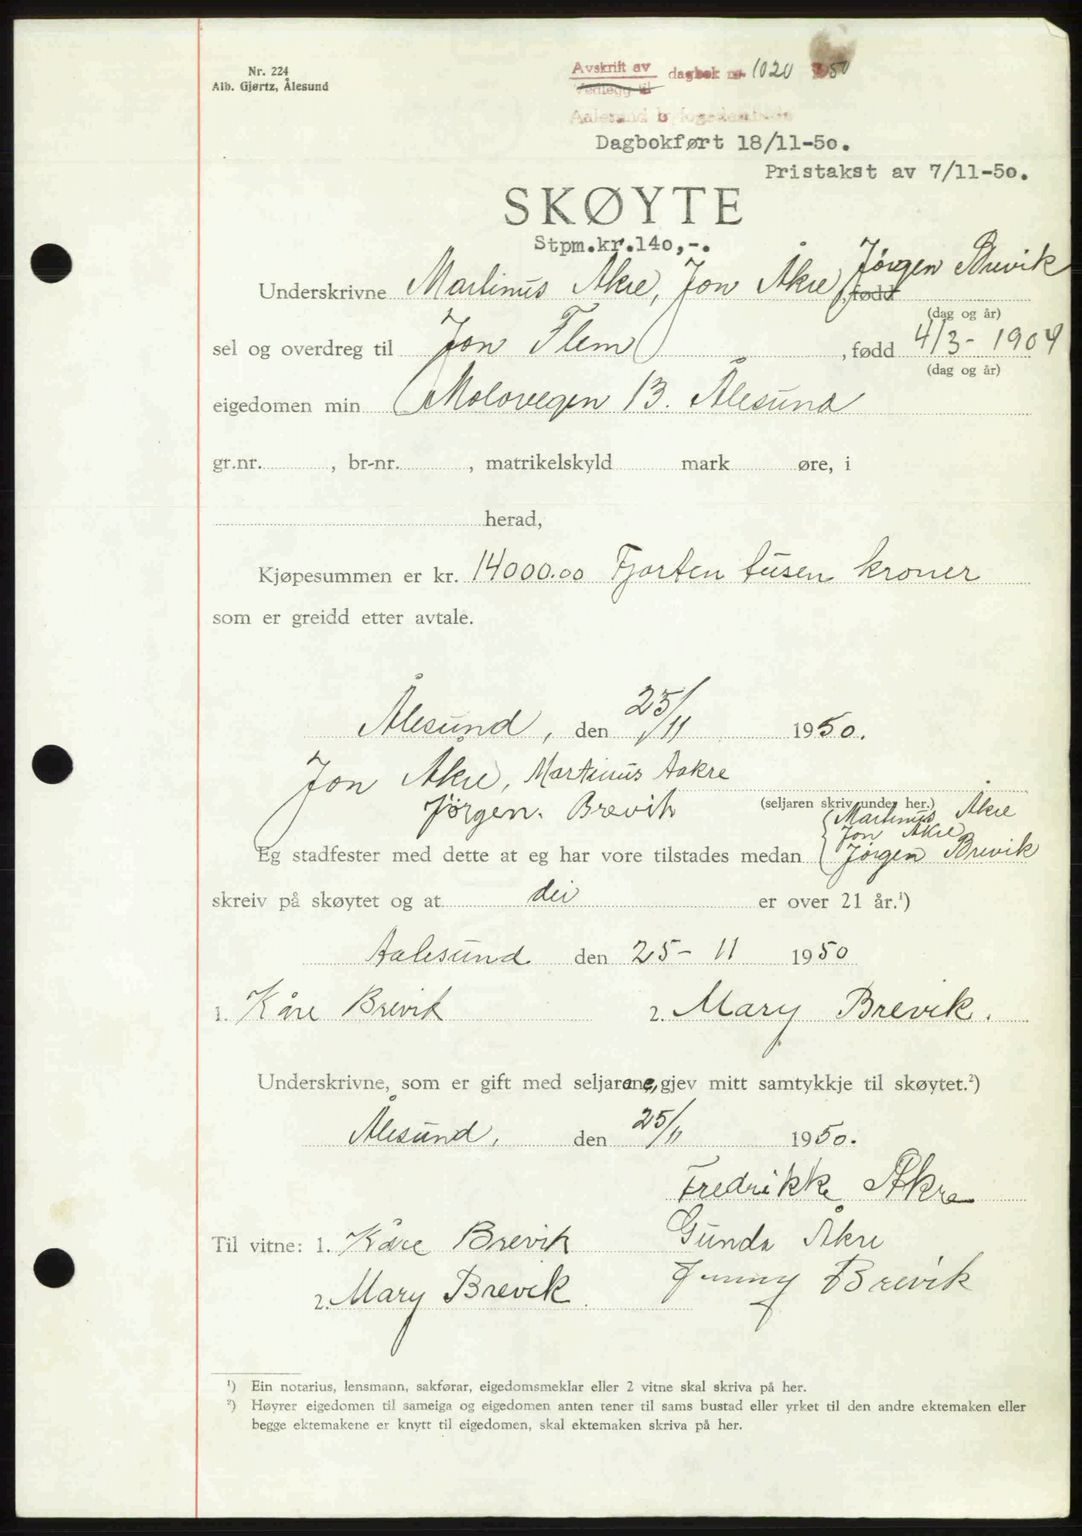 Nr. 224
Alb. Gjørtz, Ålesund
Avskrift av
Vedlegg til
dagbok nr. 1020 50
Aalesund byfogdembede
Dagbokført 18/11-50.
Pristakst av 7/11-50.
SKØYTE
Stpm.kr.140,-.
Underskrivne Martinus Åkre, Jon Åkre, Jørgen Brevik , født
(dag og år)
sel og overdreg til Jon Flem , født 4/3-1904
(dag og år)
eigedomen min Molovegen 13. Ålesund
gr.nr. , br-nr. , matrikelskyld mark øre, i
herad,
Kjøpesummen er kr. 14000.00 Fjorten tusen kroner
som er greidd etter avtale.
Ålesund, den 25/11 1950.
Jon Åkre, Martinus Aakre
Jørgen. Brevik
(seljaren skriv under her.)
Martinus Åkre
Jon Åkre
Eg stadfester med dette at eg har vore tilstades medan Jørgen Brevik
skreiv på skøytet og at dei er over 21 år.¹)
Aalesund den 25-11 1950
1. Kåre Brevik 2. Mary Brevik.
Underskrivne, som er gift med seljarane, gjev mitt samtykkje til skøytet.²)
Ålesund, den 25/11 1950.
Fredrikke Åkre
Til vitne: 1. Kåre Brevik Gunda Åkre
2. Mary Brevik. Jenny Brevik
¹) Ein notarius, lensmann, sakførar, eigedomsmeklar eller 2 vitne skal skriva på her.
²) Høyrer eigedomen til sameiga og eigedomen anten tener til sams bustad eller yrket til den andre ektemaken eller
begge ektemakene er knytt til eigedomen, skal ektemaken skriva på her.